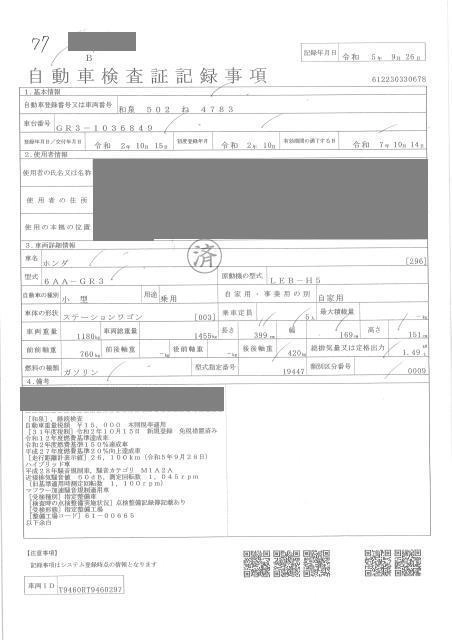 77
B
記録年月日 令和 5年 9月 26日
自動車検査証記録事項
612230330678
1.基本情報
自動車登録番号又は車両番号 和泉 502 ね 4783
車台番号 GR3-1036849
登録年月日/交付年月日 令和 2年 10月 15日 初度登録年月 令和 2年 10月 有効期間の満了する日 令和 7年 10月 14日
2.使用者情報
使用者の氏名又は名称
使用者の住所
使用の本拠の位置
3.車両詳細情報
済
車名 ホンダ [296]
型式 6AA-GR3 原動機の型式 LEB-H5
自動車の種別 小型 用途 乗用 自家用・事業用の別 自家用
車体の形状 ステーションワゴン [003] 乗車定員 5人 最大積載量 -kg
車両重量 1180kg 車両総重量 1455kg 長さ 399cm 幅 169cm 高さ 151cm
前前軸重 760kg 前後軸重 -kg 後前軸重 -kg 後後軸重 420kg 総排気量又は定格出力 1.49L
燃料の種類 ガソリン 型式指定番号 19447 類別区分番号 0009
4.備考
[和泉],継続検査
自動車重量税額 ¥15,000 本則税率適用
令和12年度燃費基準達成車
令和2年度燃費基準150%達成車
平成27年度燃費基準20%向上達成車
[走行距離計表示値] 26,100km (令和5年9月26日)
ハイブリッド車
平成28年騒音規制車,騒音カテゴリ M1A2A
マフラー加速騒音規制適用車
[受検種別] 指定整備車
[検査時の点検整備実施状況] 点検整備記録簿記載あり
[受検形態] 指定整備工場
[整備工場コード] 61-00665
以下余白
【注意事項】
記録事項はシステム登録時点の情報となります
車両ID T9460RT9460297